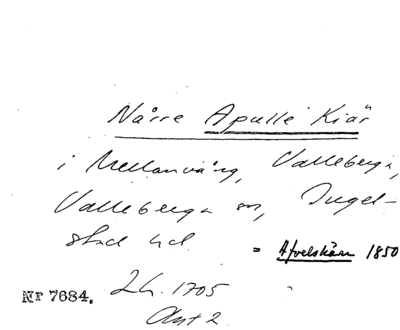 Nårre Apulle Kiär
i Mellanvång, Valleberga,
Valleberga sn, Ingel-
stad hd = Afvelskärr 1850
Nr 7684. Lh. 1705
Akt 2